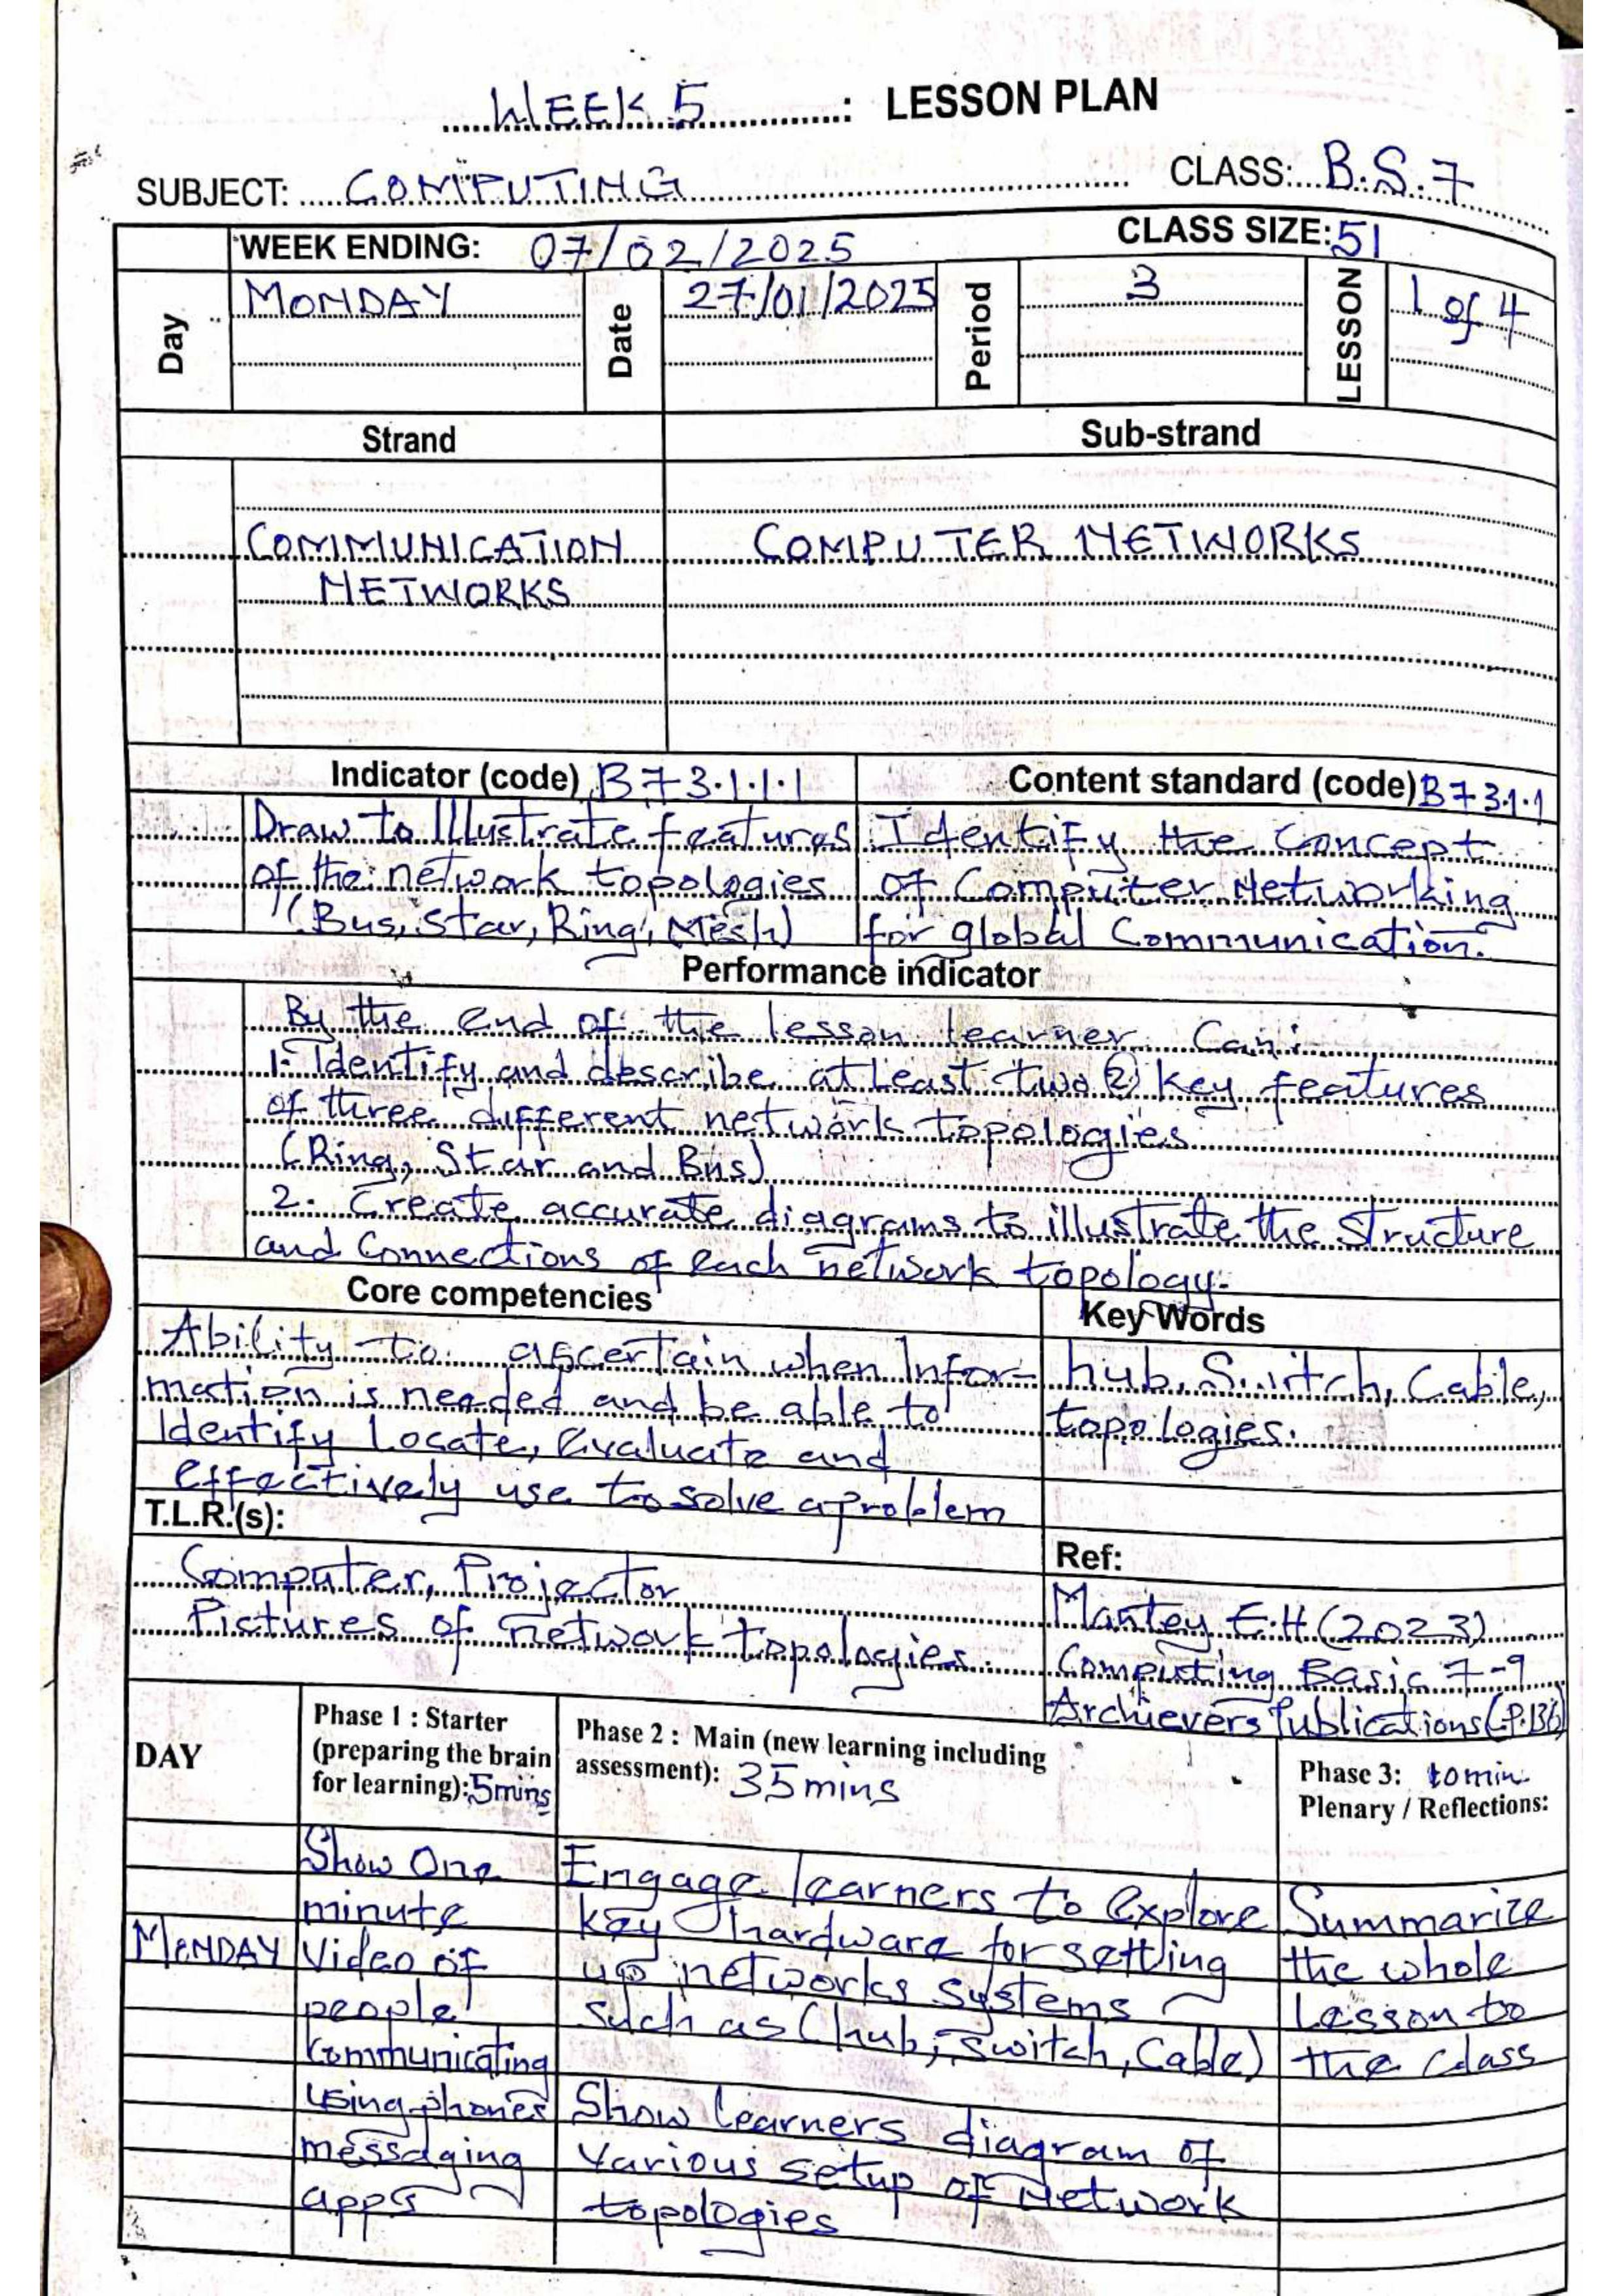 WEEK 5 : LESSON PLAN
SUBJECT: COMPUTING CLASS: B.S.7
WEEK ENDING: 07/02/2025 CLASS SIZE: 51
Day MONDAY Date 27/01/2025 Period 3 LESSON 1 of 4
Strand Sub-strand
COMMUNICATION COMPUTER NETWORKS
NETWORKS
Indicator (code) B7 3.1.1.1 Content standard (code) B7 3.1.1
Draw to Illustrate features Identify the Concept
of the network topologies of Computer Networking
(Bus, Star, Ring, Mesh) for global Communication.
Performance indicator
By the end of the lesson learner Can:
1. Identify and describe at least two (2) key features
of three different network topologies
(Ring, Star and Bus)
2. Create accurate diagrams to illustrate the structure
and Connections of each network topology.
Core competencies Key Words
Ability to ascertain when Infor- hub, Switch, Cable,
mation is needed and be able to topologies.
Identify Locate, Evaluate and
effectively use to solve a problem
T.L.R.(s): Ref:
Computer, Projector Mantey E.H (2023)
Pictures of network topologies. Computing Basic 7-9
Archievers Publications (P.136)
DAY
Phase 1 : Starter
(preparing the brain
for learning): 5mins
Phase 2 : Main (new learning including
assessment): 35mins
Phase 3: 10 min
Plenary / Reflections:
MONDAY
Show One
minute
Video of
people
Communicating
using phones
messaging
apps
Engage learners to explore
key hardware for setting
up networks systems
such as (hub, switch, Cable)
Show learners diagram of
various setup of Network
topologies
Summarize
the whole
Lesson to
the class